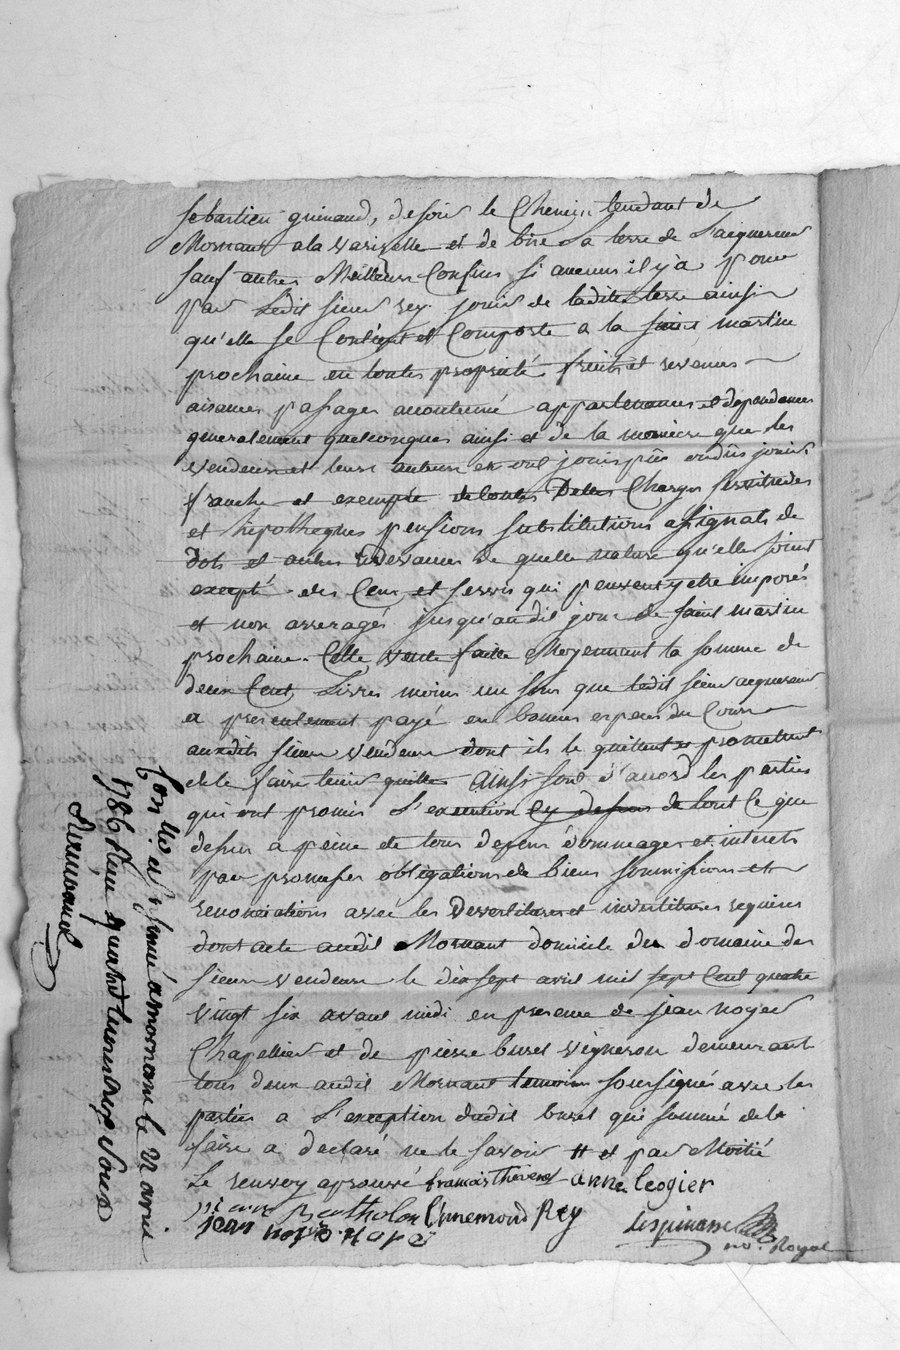 sebastien guinand, de soir le Chemin tendant de
Mornant a la varizelle et de bize La terre de L'acquereur
sauf autres Meilleurs Confins si aucuns il y a pour
par Ledit sieur rey jouir de laditte terre ainsi
qu'elle se Contient et Comporte a la saint martin
prochaine en toutes proprieté fruits et revenus
aisances passages accoutumé appartenances et dependances
generalement quelconques ainsi et de la maniere que les
vendeurs et leurs auteurs en ont jouis pûs ou dûs jouir,
franche et exempte de toutes Dettes Charges servitudes
et hipotheques pensions substitutions assignats de
dots et autres redevances de quelle nature qu'elle soint
excepté des Cens et servis qui peuvent y etre imposés
et non arreragés jusqu'audit jour de saint martin
prochaine. Cette vente faitte Moyennant la somme de
deux Cent Livres moins un sous que ledit sieur acquereur
a presentement payé en bonnes especes du Cours
auxdits sieurs vendeurs dont ils le quittent et promettent
de le faire tenir quitte Ainsi sont d'accord les parties
qui ont promis L'execution de tout Ce que
dessus a peine de tous depens dommages et interets
par promesses obligations de biens soumissions et
renonciations avec les Devestitures et investitures requises
dont acte audit Mornant domicile du domaine des
sieurs vendeurs le dix sept avril mil sept Cent quatre
vingt six avant midi en presence de jean noyer
Chapellier et de pierre buret vigneron demeurant
tous deux audit Mornant temoins soussignés avec les
parties a L'exception dudit buret qui sommé de le
faire a declaré ne le savoir # et par Moitié
Le renvoy aprouvé francois Thevenet anne leogier
pierre Bertholon Ennemond Rey
jean noyer Lespinasse no.e Royal
Con.lle et insinué a mornant le 21 avril
1786 Reçu quarante deux sous